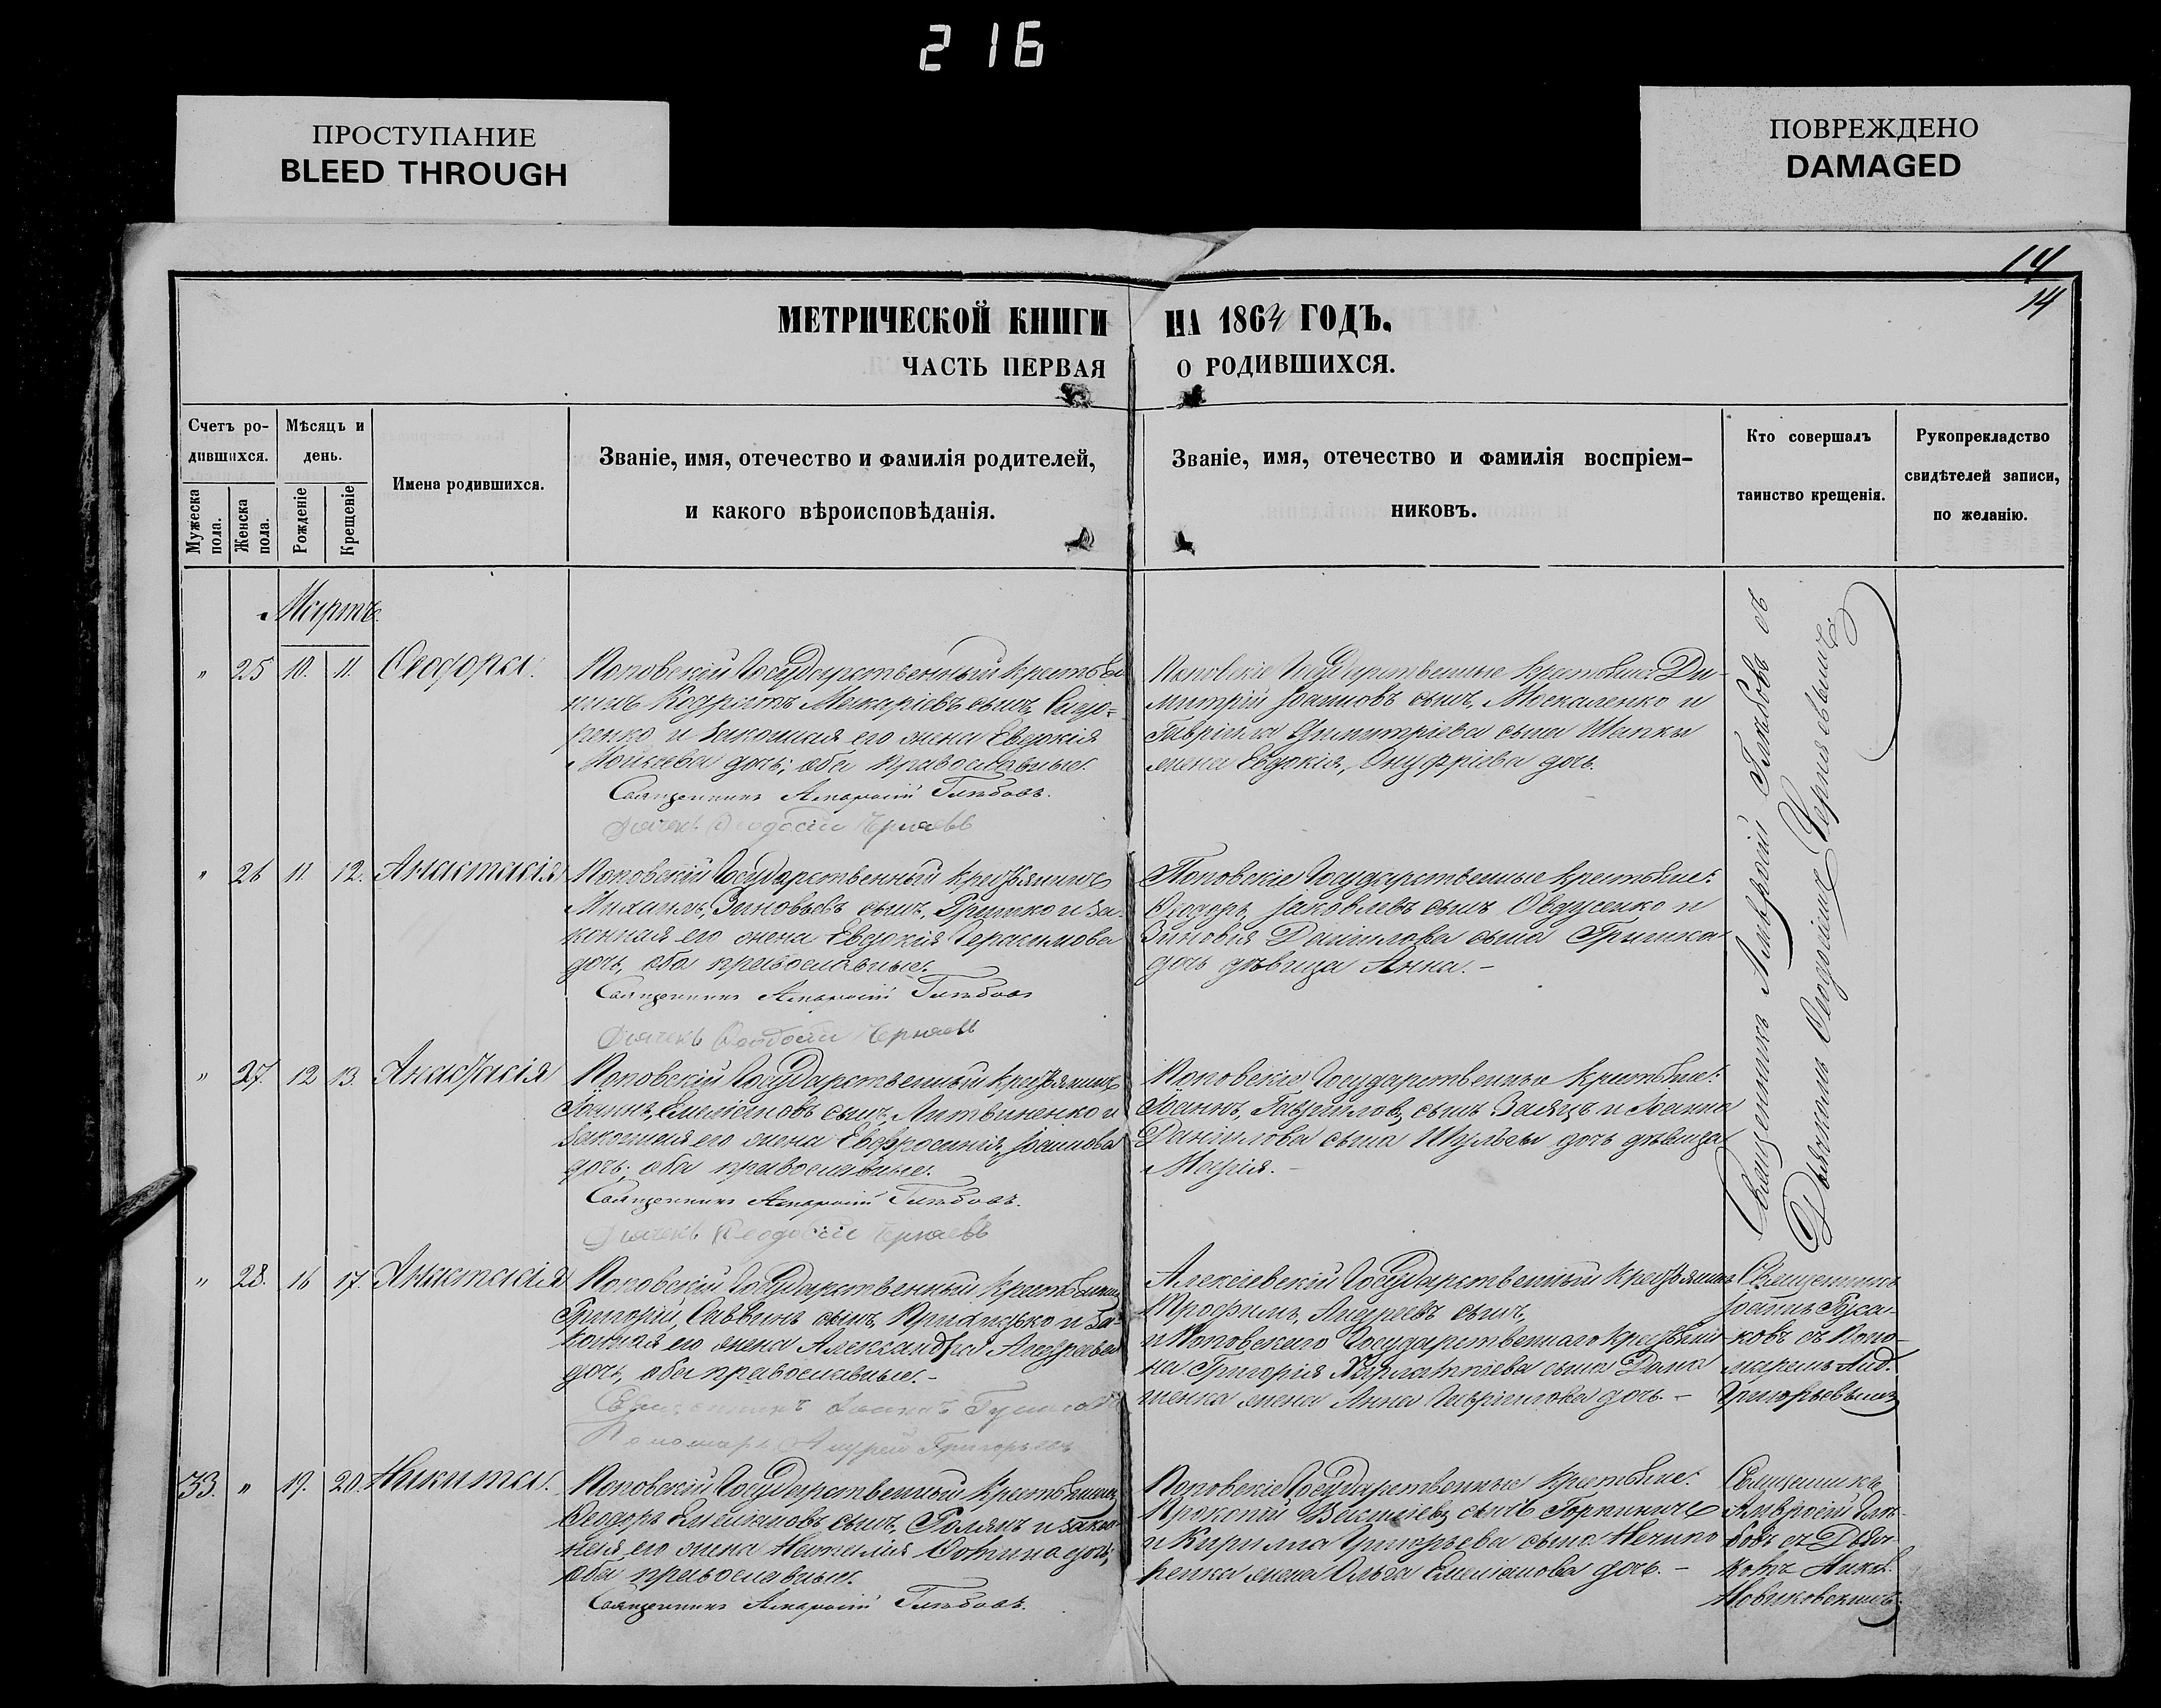 216
ПРОСТУПАНИЕ
BLEED THROUGH
ПОВРЕЖДЕНО
DAMAGED
14
14
МЕТРИЧЕСКОЙ КНИГИ НА 1864 ГОДЪ.
ЧАСТЬ ПЕРВАЯ О РОДИВШИХСЯ.
Счетъ ро-
дившихся.
Мужеска пола.
Женска пола.
Мѣсяцъ и
день.
Рожденіе
Крещеніе
Имена родившихся.
Званіе, имя, отечество и фамилія родителей,
и какого вѣроисповѣданія.
Званіе, имя, отечество и фамилія воспріем-
никовъ.
Кто совершалъ
таинство крещенія.
Рукоприкладство
свидѣтелей записи,
по желанію.
Мартъ.
" 25 10. 11. Ѳеодора.
Поповскій Государственный крестьѧ
нинъ Кодратъ Макаріевъ сынъ, Сидо=
ренко и законная его жена Евдокія
Мойсеева дочь; оба православные.
Священникъ Амвросій Глѣбовъ.
Дьячекъ Ѳеодосій Черняевъ
Поповскіе Государственные крестьяне: Ди-
митрій Іоанновъ сынъ, Москаленко и
Гавріила Димитріева сына Шапки
жена Евдокія, Онуфріева дочь.
Священникъ Амвросій Глѣбовъ съ
Дьячкомъ Ѳеодосіемъ Черняевымъ
" 26 11. 12. Анастасія
Поповскій Государственный крестьянинъ
Михаилъ, Зиновьевъ сынъ, Гришко и за-
конная его жена Евдокія Герасимова
дочь, оба православные.
Священникъ Амвросій Глѣбовъ
Дьячекъ Ѳеодосій Черняевъ
Поповскіе Государственные крестьяне:
Ѳеодоръ, Іаковлевъ сынъ Овдусенко и
Зиновія Даніилова сына Гришка
дочь дѣвица Анна. -
" 27. 12 13. Анастасія
Поповскій Государственный крестьянинъ
Іоаннъ, Емеліановъ сынъ, Литвиненко и
законная его жена Евфросинія, Іоаннова
дочь; оба православные.
Священникъ Амвросій Глѣбовъ.
Дьячекъ Ѳеодосій Черняевъ
Поповскіе Государственные крестьяне:
Іоаннъ, Гавріиловъ, сынъ Заяцъ и Іоанна
Даніилова сына Шульги дочь дѣвица
Марія. -
" 28. 16 17. Анастасія
Поповскій Государственный крестьянинъ
Григорій, Саввинъ сынъ, Придатько и за-
конная его жена Александра Андреева
дочь, оба православные. -
Священникъ Іоаннъ Гусаковъ
Пономарь Андрей Григорьевъ
Алексіевскій Государственный крестьянинъ
Трофимъ, Андреевъ сынъ,
и Поповскаго Государственнаго крестьяни-
на Григорія Харлампіева сына Дома
щенка жена Анна Гавріилова дочь. -
Священникъ
Іоаннъ Гуса-
ковъ съ Поно-
маремъ Анд.
Григорьевымъ
33. " 19. 20. Никита.
Поповскій Государственный крестьянинъ
Ѳеодоръ Емеліановъ сынъ, Голякъ и закон-
ная его жена Наталія Фотина дочь,
оба православные.
Священникъ Амвросій Глѣбовъ.
Поповскіе Государственные крестьяне:
Прокопій Василіевъ сынъ Горпиничъ
и Кирилла Григорьева сына Нечипо
ренка жена Ольга Емеліанова дочь. -
Священникъ
Амвросій Глѣ-
бовъ съ Дьяч-
комъ Никол.
Новаковскимъ